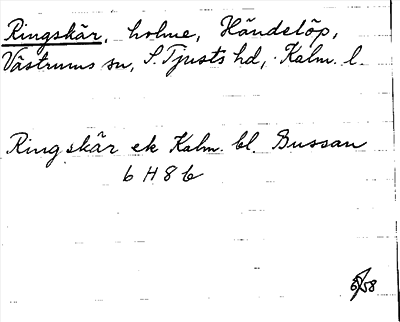 Ringskär, holme, Händelöp,
Västrums sn, S. Tjusts hd, Kalm. l.
Ringskär ek Kalm. bl. Bussan
6 H 8 b